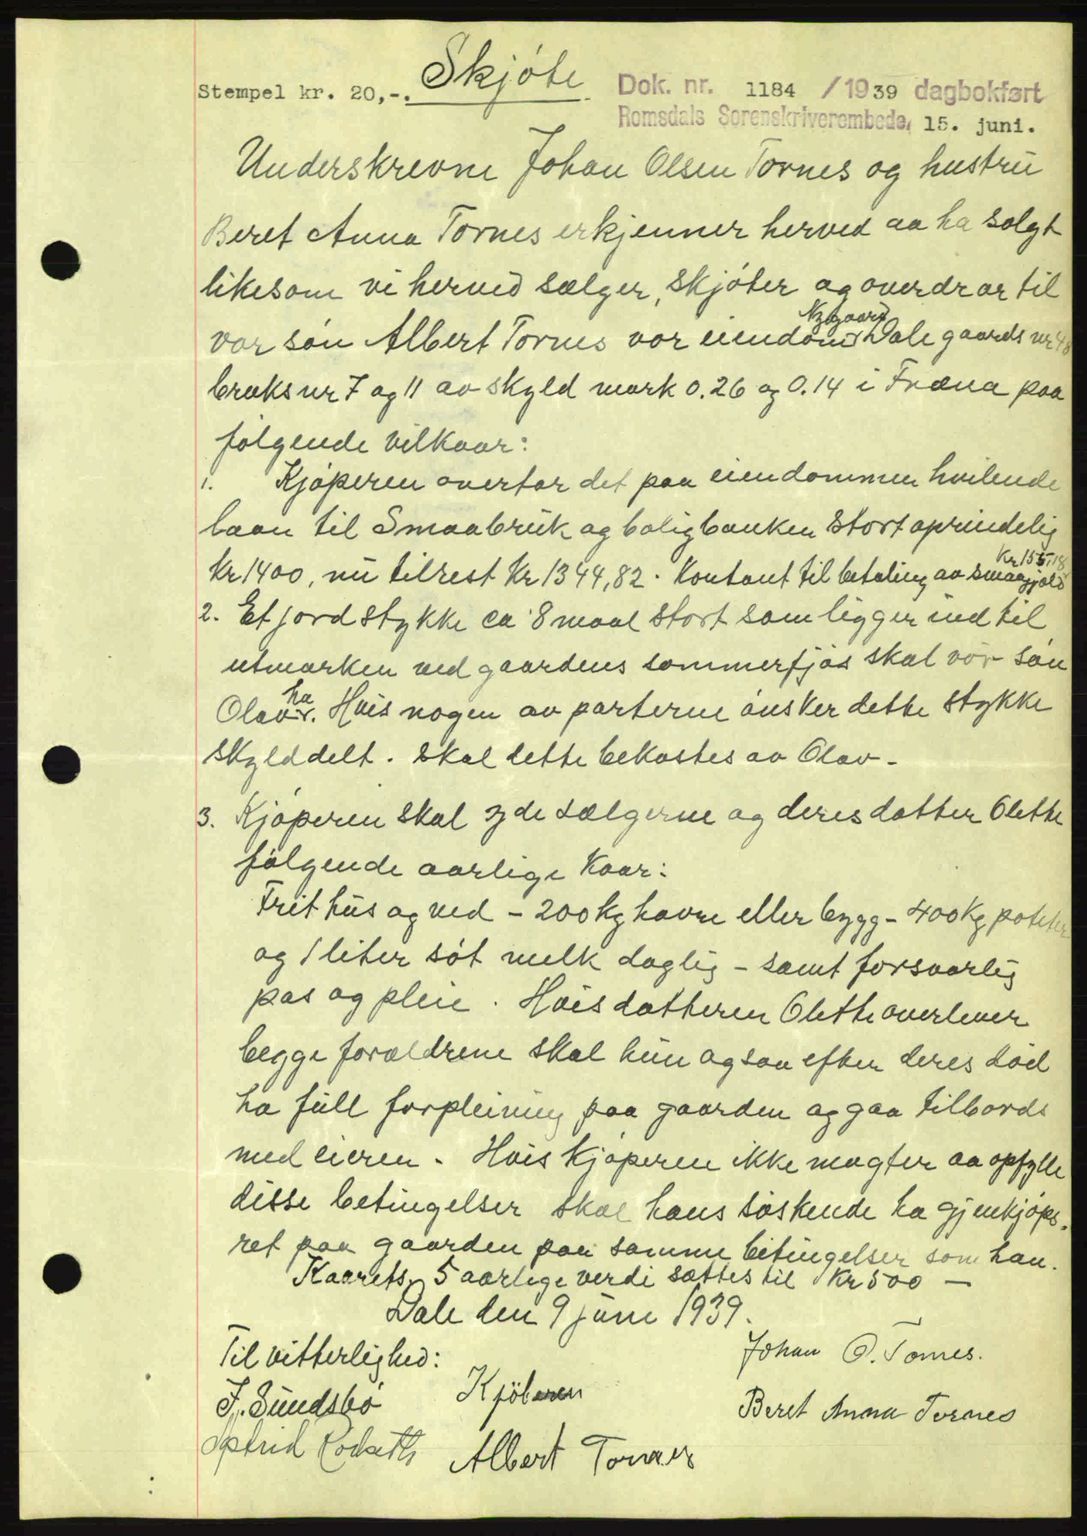 Skjöte
Stempel kr. 20,-.
Dok. nr. 1184 /1939 dagbokført
Romsdals Sorenskriverembede, 15. juni.
Underskrevne Johan Olsen Tornes og hustru
Beret Anna Tornes erkjenner herved aa ha solgt
likesom vi herved sælger, skjöter og overdrar til
vor sön Albert Tornes vor eiendom Nygaard Dale gaards nr 48
bruks nr 7 og 11 av skyld mark 0.26 og 0.14 i Fræna paa
fölgende vilkaar:
1. Kjöperen overtar det paa eiendommen hvilende
laan til Smaabruk og boligbanken stort oprindelig
kr 1400, nu tilrest kr 1344,82. Kontant til betaling av smaagjæld kr
2. Et jordstykke ca 8 maal stort som ligger ind til
utmarken ved gaardens sommerfjös skal vor sön
Olav ha. Hvis nogen av parterne önsker dette stykke
skylddelt. skal dette bekostes av Olav.
3. Kjöperen skal yde sælgerne og deres datter Olette
fölgende aarlige kaar:
Frit hus og ved - 200 kg havre eller bygg - 400 kg poteter
og 1 liter söt melk daglig - samt forsvarlig
pas og pleie. Hvis datteren Olette overlever
begge forældrene skal hun ogsaa efter deres död
ha full forpleining paa gaarden og gaa tilbords
med eieren. Hvis kjöperen ikke magter aa opfylle
disse betingelser skal hans söskende ha gjenkjöps-
ret paa gaarden paa samme betingelser som han.
Kaarets 5 aarlige verdi sættes til kr 500 -
Dale den 9 juni 1939.
Til vitterlighed:
Johan O. Tornes.
J. Sundsbö
Kjöberen
Beret Anna Tornes
Albert Tornes